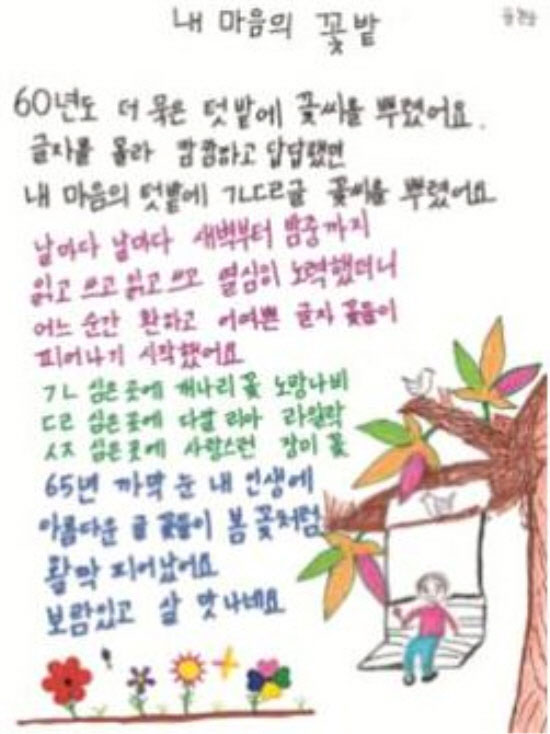 내 마음의 꽃밭
60년도 더 묵은 텃밭에 꽃씨를 뿌렸어요.
글자를 몰라 깜깜하고 답답했던
내 마음의 텃밭에 ㄱㄴㄷㄹ글 꽃씨를 뿌렸어요
날마다 날마다 새벽부터 밤중까지
읽고 쓰고 읽고 쓰고 열심히 노력했더니
어느 순간 환하고 어여쁜 글자 꽃들이
피어나기 시작했어요
ㄱㄴ 심은 곳에 개나리 꽃 노랑나비
ㄷㄹ 심은 곳에 다알리아 라일락
ㅅㅈ 심은 곳에 사랑스런 장미 꽃
65년 까막 눈 내 인생에
아름다운 글 꽃들이 봄 꽃처럼
활짝 피어났어요
보람있고 살 맛 나네요